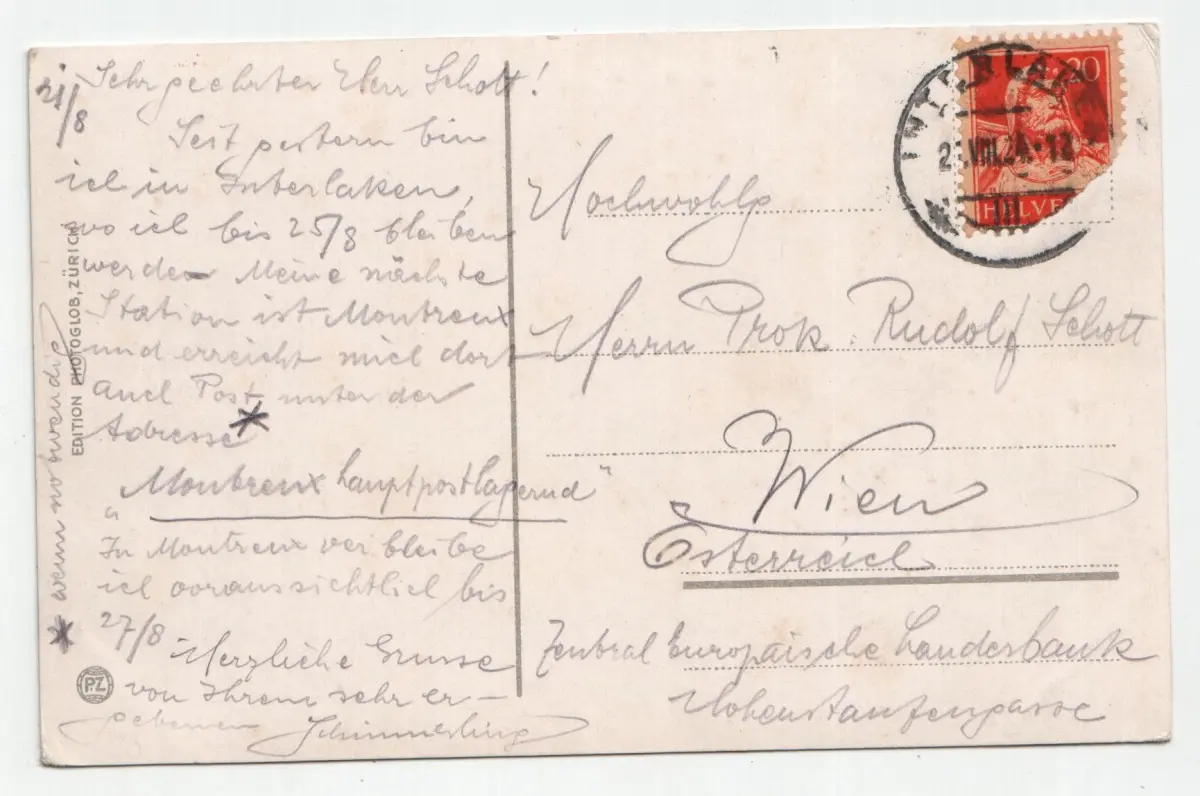 21/8
Sehr geehrter Herr Schott!
Seit gestern bin
ich in Interlaken,
wo ich bis 25/8 bleiben
werde. Meine nächste
Station ist Montreux
und erreicht mich dort
auch Post unter der
Adresse*
„Montreux hauptpostlagernd"
In Montreux verbleibe
ich voraussichtlich bis
27/8
Herzliche Grüsse
von Ihrem sehr er-
gebenen Schimmerling
* wenn notwendig
EDITION PHOTOGLOB, ZÜRICH
P.Z
INTERLAKEN
VIII.24-12
III
20
HELVE
Hochwohlg
Herrn Prok. Rudolf Schott
Wien
Österreich
Zentral Europäische Länderbank
Hohenstaufengasse